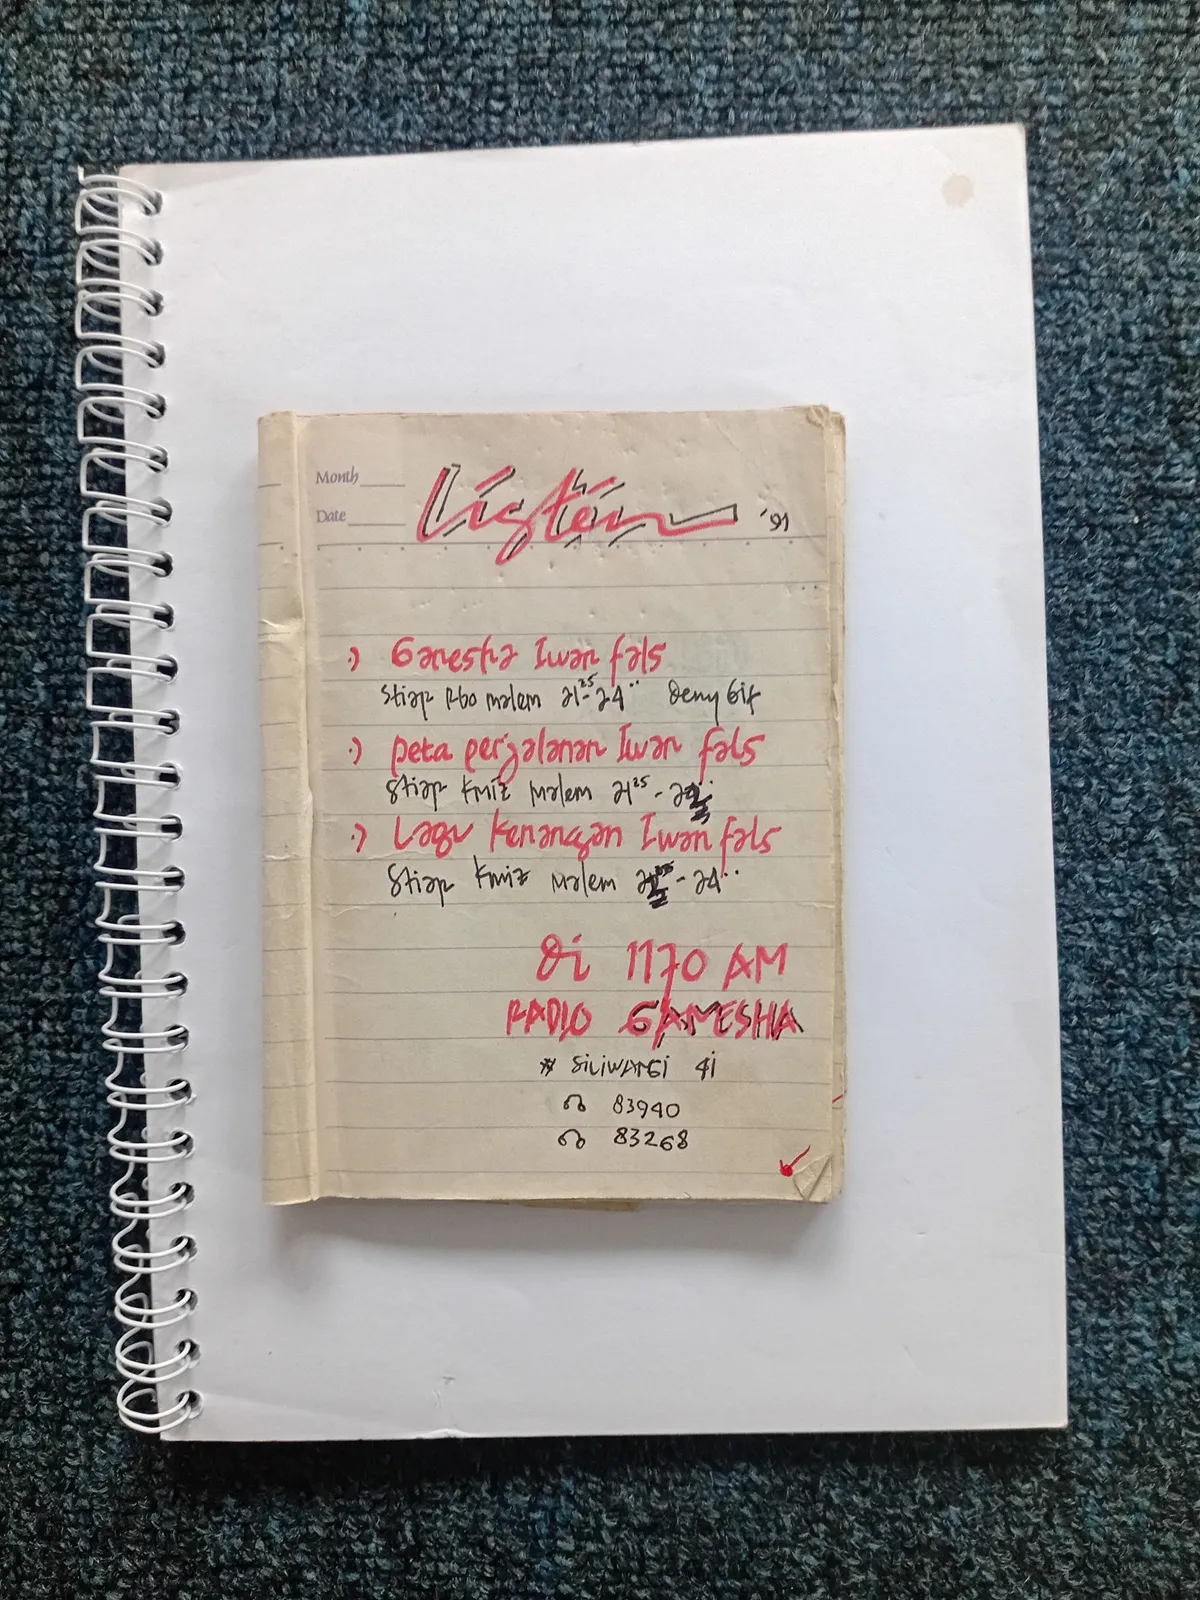 Month
Date
Listen '91
·) Ganesha Iwan fals
Stiap Rbo malem 21²⁵-24·· Deny Gif
·) peta perjalanan Iwan fals
Stiap Kmiz Malem 21²⁵ -
·) Lagu Kenangan Iwan fals
Stiap Kmiz Malem - 24··
Di 1170 AM
RADIO GANESHA
* SiLiWANGi 4i
83940
83268